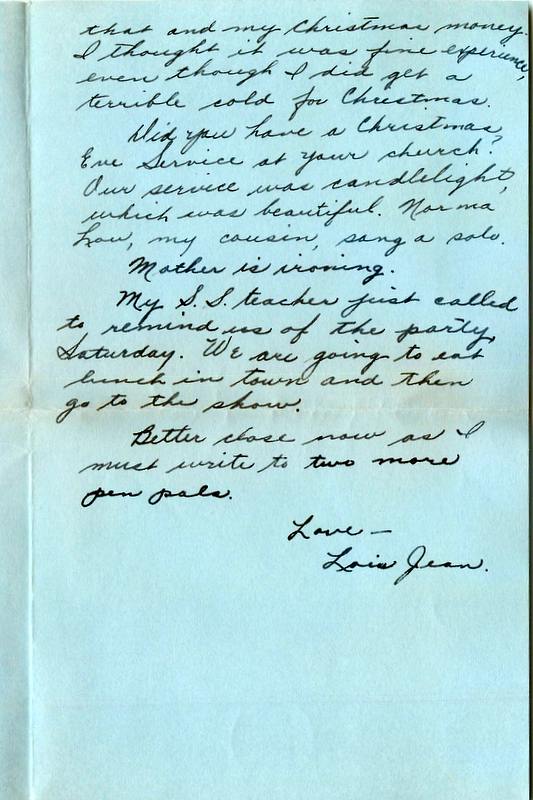 that and my Christmas money.
I thought it was fine experience,
even though I did get a
terrible cold for Christmas.
Did you have a Christmas
Eve Service at your church?
Our service was candlelight,
which was beautiful. Norma
Low, my cousin, sang a solo.
Mother is ironing.
My S.S. teacher just called
to remind us of the party
Saturday. We are going to eat
lunch in town and then
go to the show.
Better close now as I
must write to two more
pen pals.
Love —
Lois Jean.